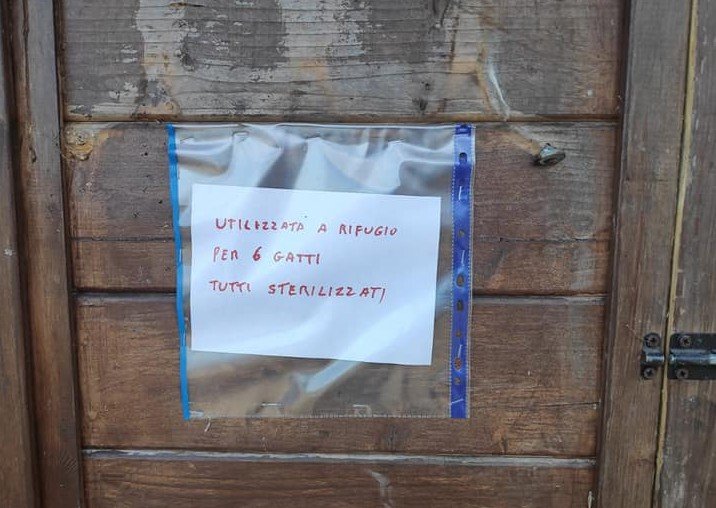 UTILIZZATA A RIFUGIO
PER 6 GATTI
TUTTI STERILIZZATI